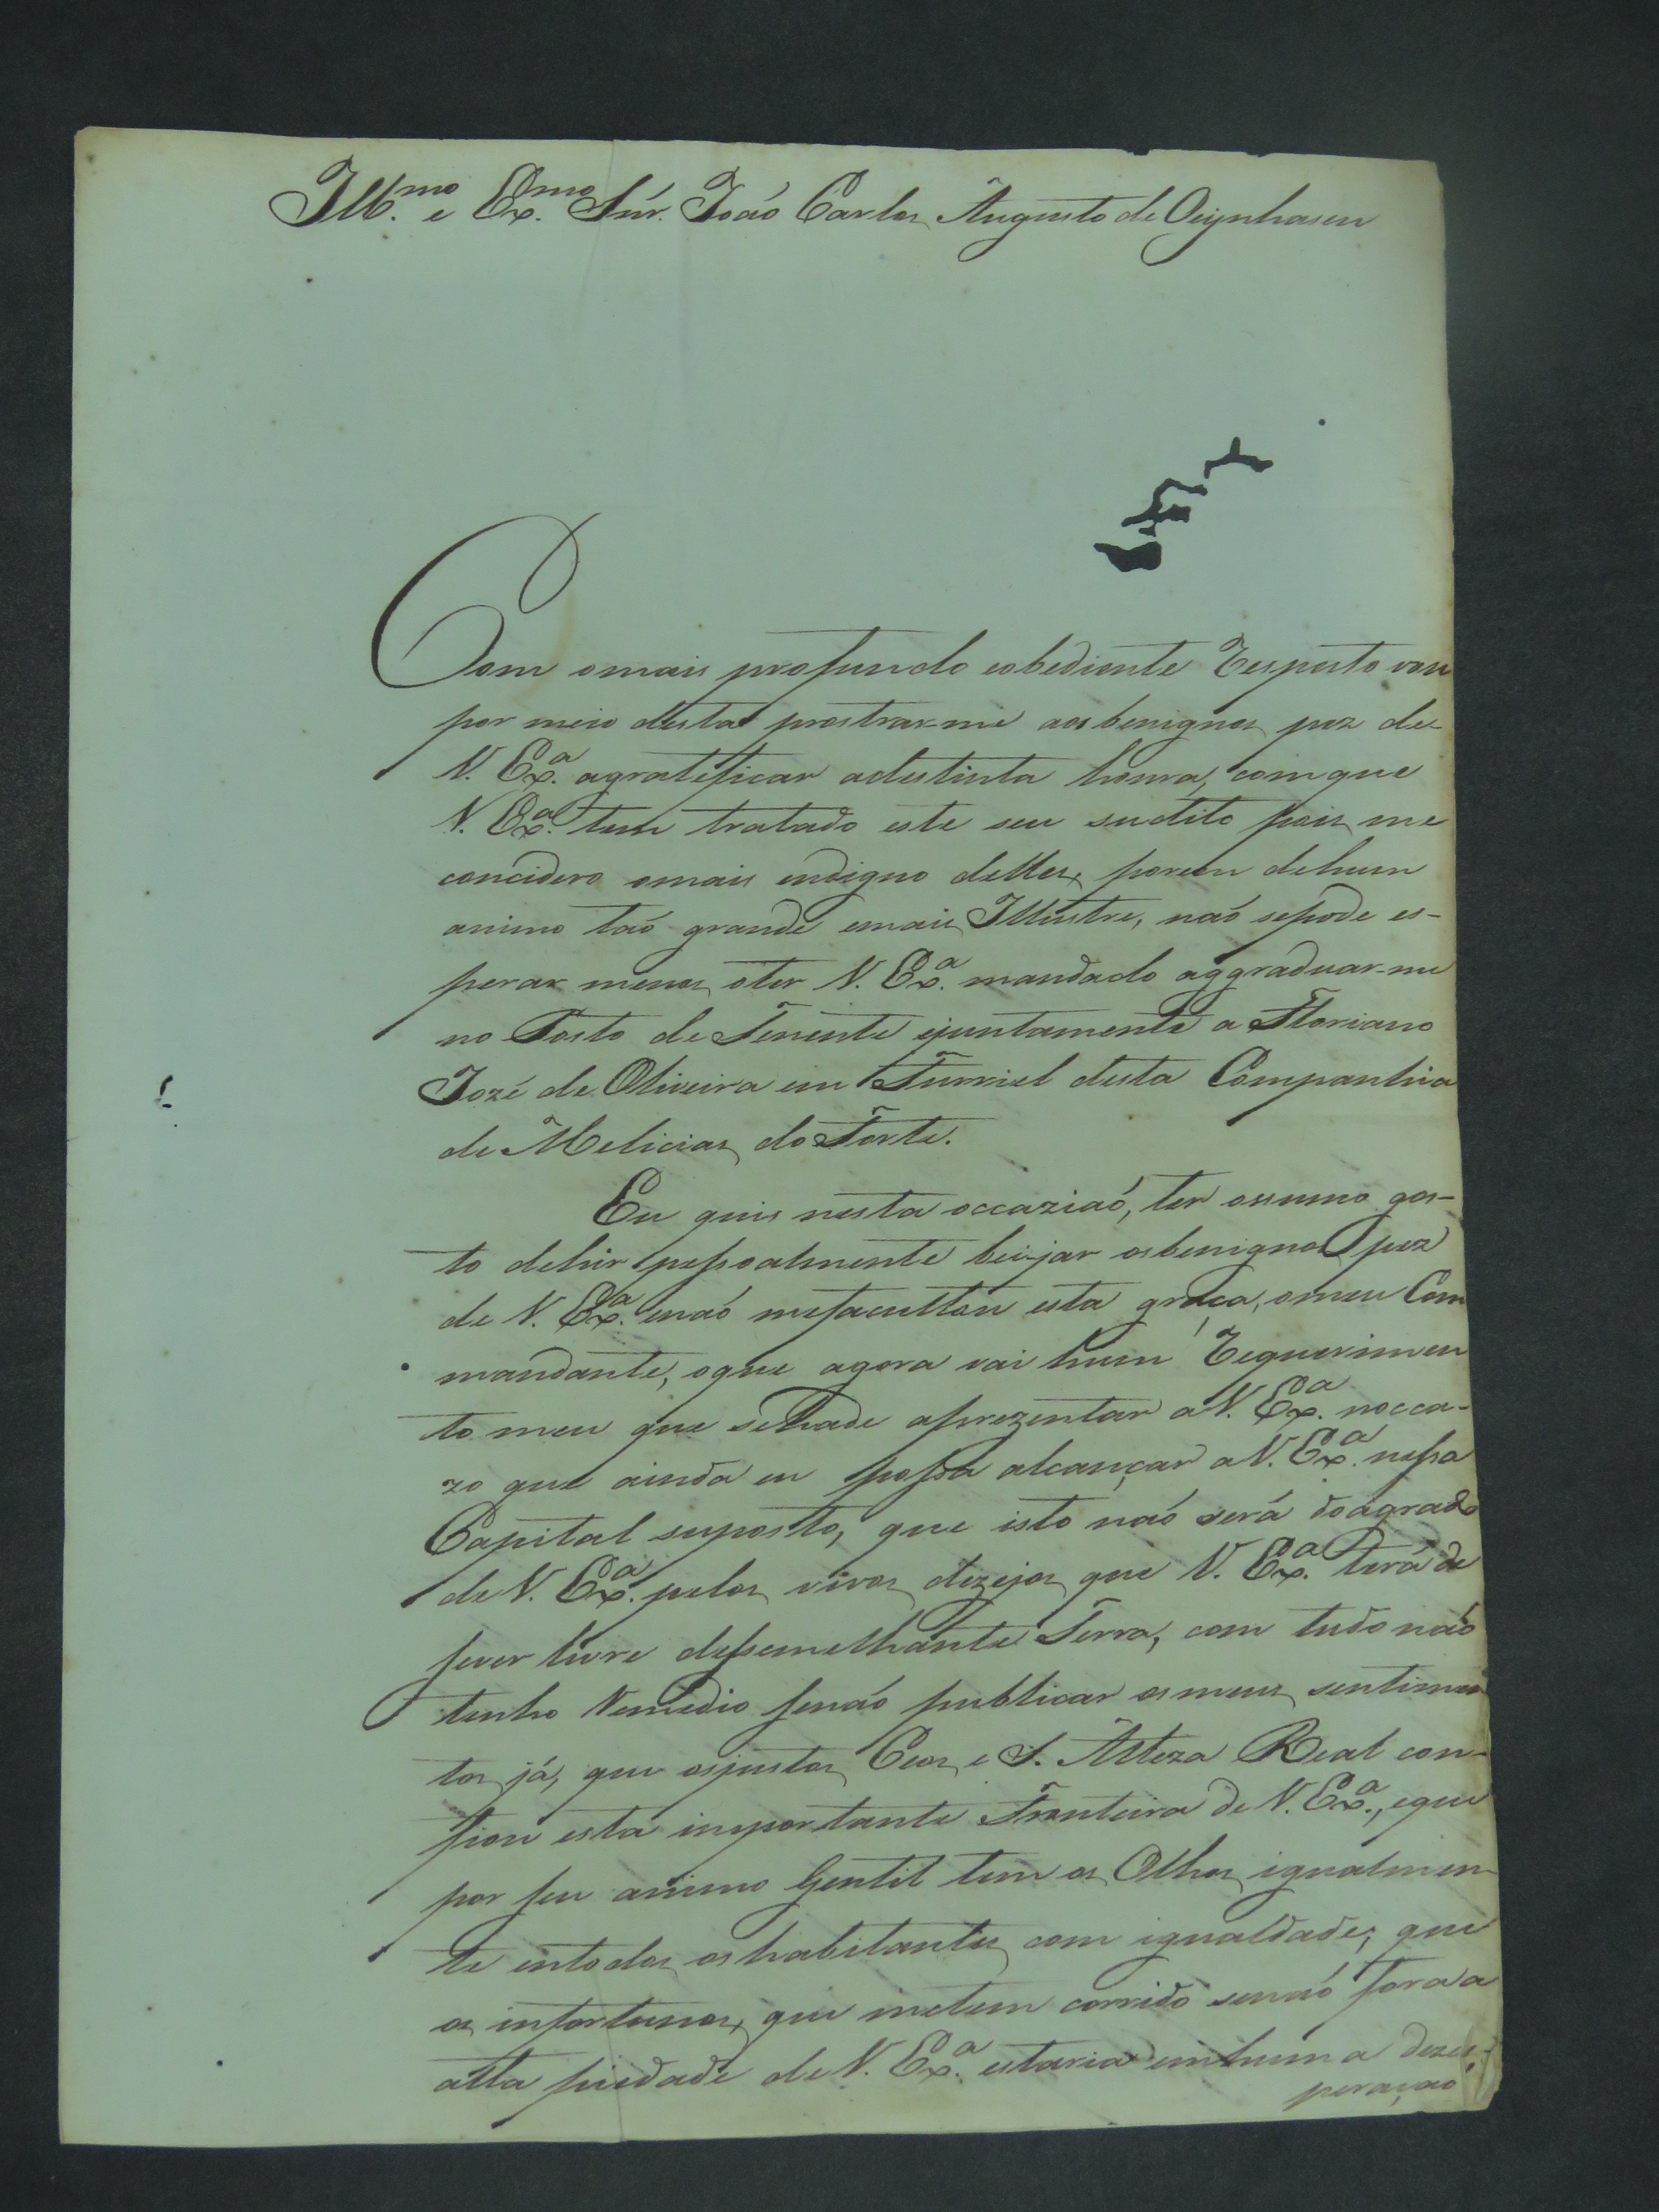 Ill.mo e Ex.mo Snr. Joaó Carlos Augusto de Oeynhasen
Com omais profundo eobediente Respeito vou
por meio desta prostrar-me aos benignos pez de
V. Ex.a agratificar adestinta honra, comque
V. Ex.a tem tratado este seu sudito pois me
concidero omais indigno delles, porem dehum
animo taó grande emais Illustre, naó sepode es-
perar menos oter V. Ex.a mandado aggraduar-me
no Posto de Tenente ejuntamente a Floriano
Jozé de Oliveira em Furriel desta Companhia
de Melicias do Forte.
Eu quis nesta occaziaó, ter osumo gos-
to dehir pessoalmente beijar osbenignos pez
de V. Ex.a enaó mefacultou esta graça, omeu Com
mandante, oque agora vai hum Requerimen
to meu que sehade aprezentar aV. Ex.a nocca-
zo que ainda eu possa alcançar aV. Ex.a nessa
Capital suposto, que isto naó será doagrado
de V. Ex.a pelos vivos dezejos que V. Ex.a terá de
sever livre dessemelhante Terra, com tudo naó
tenho Remedio senaó publicar osmeus sentimen
tos já, que osjustos Ceos e S. Alteza Real con-
fiou esta importante Fronteira de V. Ex.a, eque
por seu animo Gentil tem os Olhos igualmen
te entodos oshabitantes com igualdade, que
os infortunos, que metem corrido senaó fora a
alta piedade de V. Ex.a estaria emhuma dezes-
peraçaó